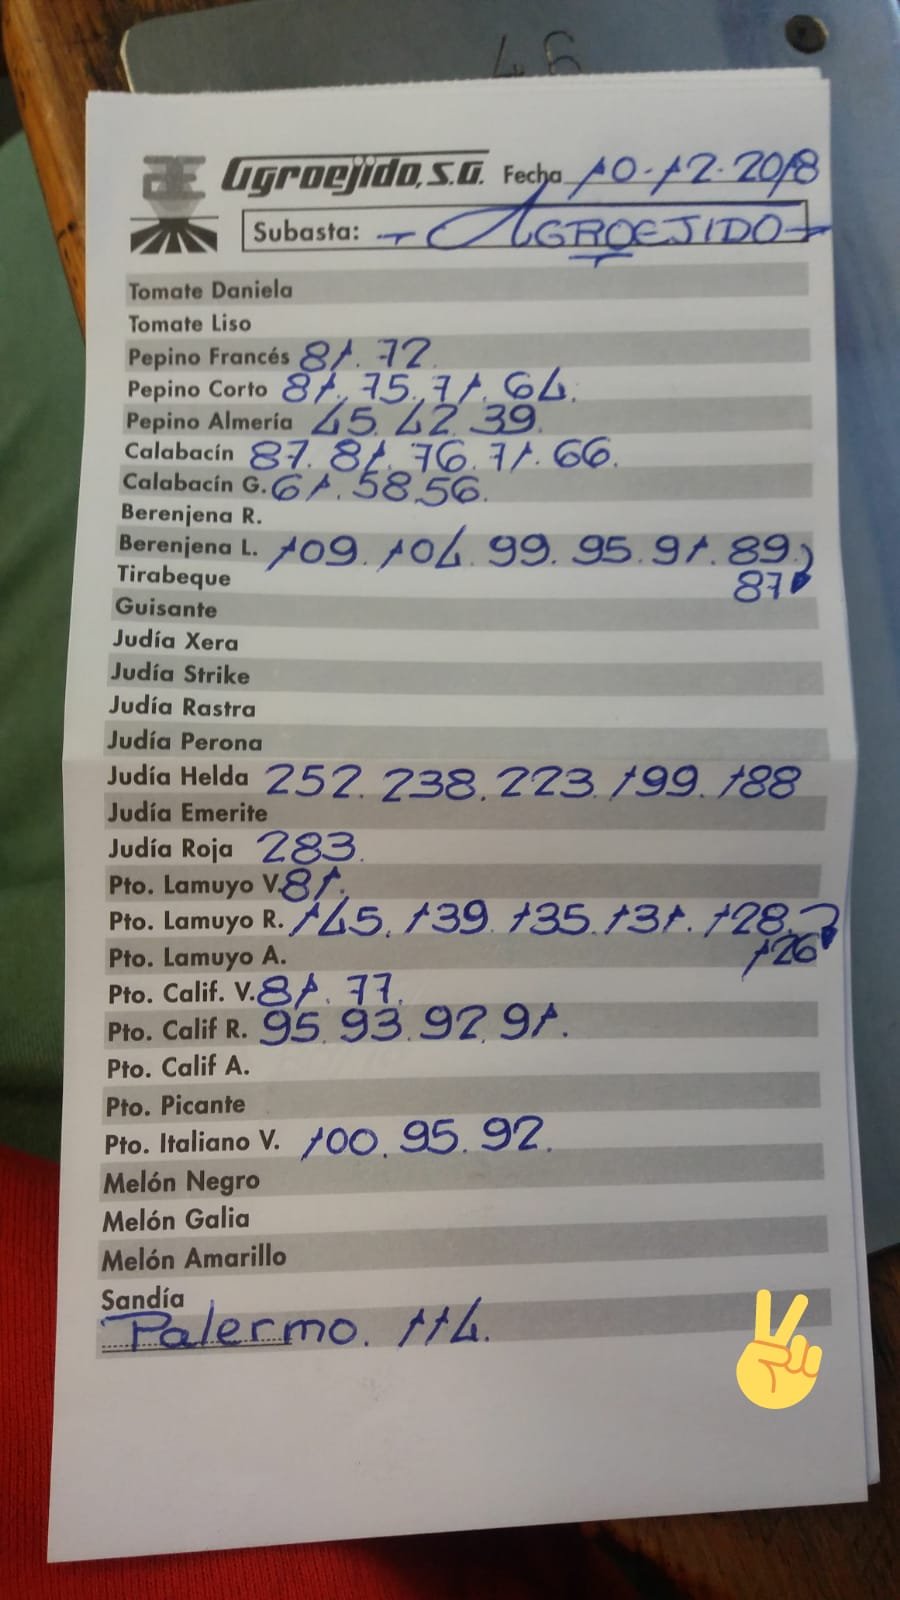 46
Agroejido, S.A. Fecha 10-12-2018
Subasta: - AGROEJIDO -
Tomate Daniela
Tomate Liso
Pepino Francés 81. 72
Pepino Corto 81. 75. 71. 64.
Pepino Almería 45. 42. 39.
Calabacín 87. 81. 76. 71. 66.
Calabacín G. 61. 58. 56.
Berenjena R.
Berenjena L. 109. 104. 99. 95. 91. 89.
Tirabeque 87
Guisante
Judía Xera
Judía Strike
Judía Rastra
Judía Perona
Judía Helda 252. 238. 223. 199. 188
Judía Emerite
Judía Roja 283.
Pto. Lamuyo V. 81.
Pto. Lamuyo R. 145. 139. 135. 131. 128.
Pto. Lamuyo A. 126
Pto. Calif. V. 81. 77.
Pto. Calif R. 95. 93. 92. 91.
Pto. Calif A.
Pto. Picante
Pto. Italiano V. 100. 95. 92.
Melón Negro
Melón Galia
Melón Amarillo
Sandía
Palermo. 114.